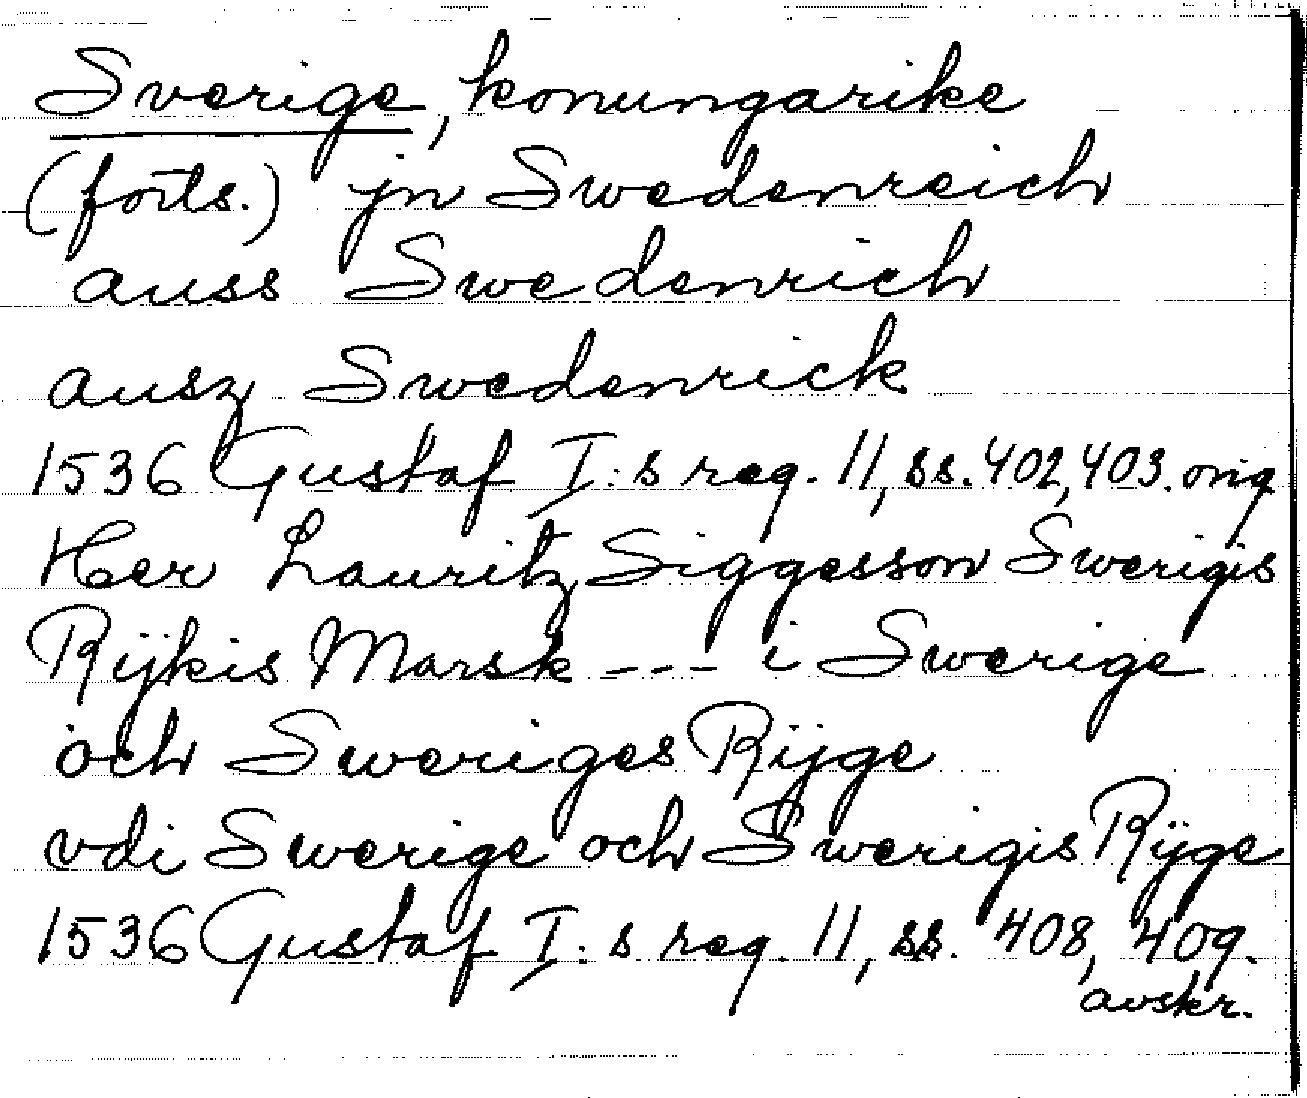 Sverige, konungarike
(forts.) jn Swedenreich
auss Swedenrich
ausz Swedenrick
1536 Gustaf I:s reg. 11, ss. 402, 403. orig
Her Lauritz Siggesson Swerigis
Rijkis Marsk --- i Swerige
och Sweriges Rijge
vdi Swerige och Swerigis Rijge
1536 Gustaf I:s reg. 11, ss. 408, 409.
avskr.